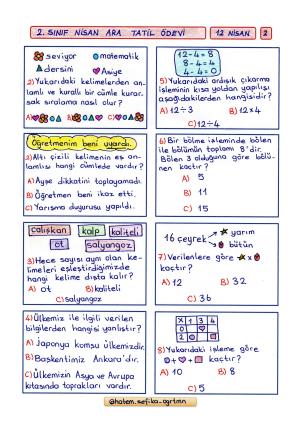 2. SINIF NİSAN ARA TATİL ÖDEVİ
12 NİSAN
2
seviyor
matematik
dersini
Asiye
2) Yukarıdaki kelimelerden an-
lamlı ve kurallı bir cümle kurar-
sak sıralama nasıl olur?
A)
B)
C)
Öğretmenim beni uyardı.
2) Altı çizili kelimenin eş an-
lamlısı hangi cümlede vardır?
A) Ayşe dikkatini toplayamadı.
B) Öğretmen beni ikaz etti.
C) Yarışma duyurusu yapıldı.
çalışkan
kalp
kaliteli
ot
salyangoz
3) Hece sayısı aynı olan ke-
limeleri eşleştirdiğimizde
hangi kelime dışta kalır?
A) ot
B) kaliteli
C) salyangoz
4) Ülkemiz ile ilgili verilen
bilgilerden hangisi yanlıştır?
A) Japonya komşu ülkemizdir.
B) Başkentimiz Ankara'dır.
C) Ülkemizin Asya ve Avrupa
kıtasında toprakları vardır.
12-4=8
8-4=4
4-4=0
5) Yukarıdaki ardışık çıkarma
işleminin kısa yoldan yapılışı
aşağıdakilerden hangisidir?
A) 12÷3
B) 12x4
C) 12÷4
6) Bir bölme işleminde bölen
ile bölümün toplamı 8'dir.
Bölen 3 olduğuna göre bölü-
nen kaçtır?
A) 5
B) 11
C) 15
16 çeyrek
yarım
bütün
7) Verilenlere göre
+
kaçtır?
A) 12
B) 32
C) 36
X 1 3 4
0
2
8) Yukarıdaki işleme göre
+ + kaçtır?
A) 10
B) 8
C) 5
@hatem.sefika.ogrtmn